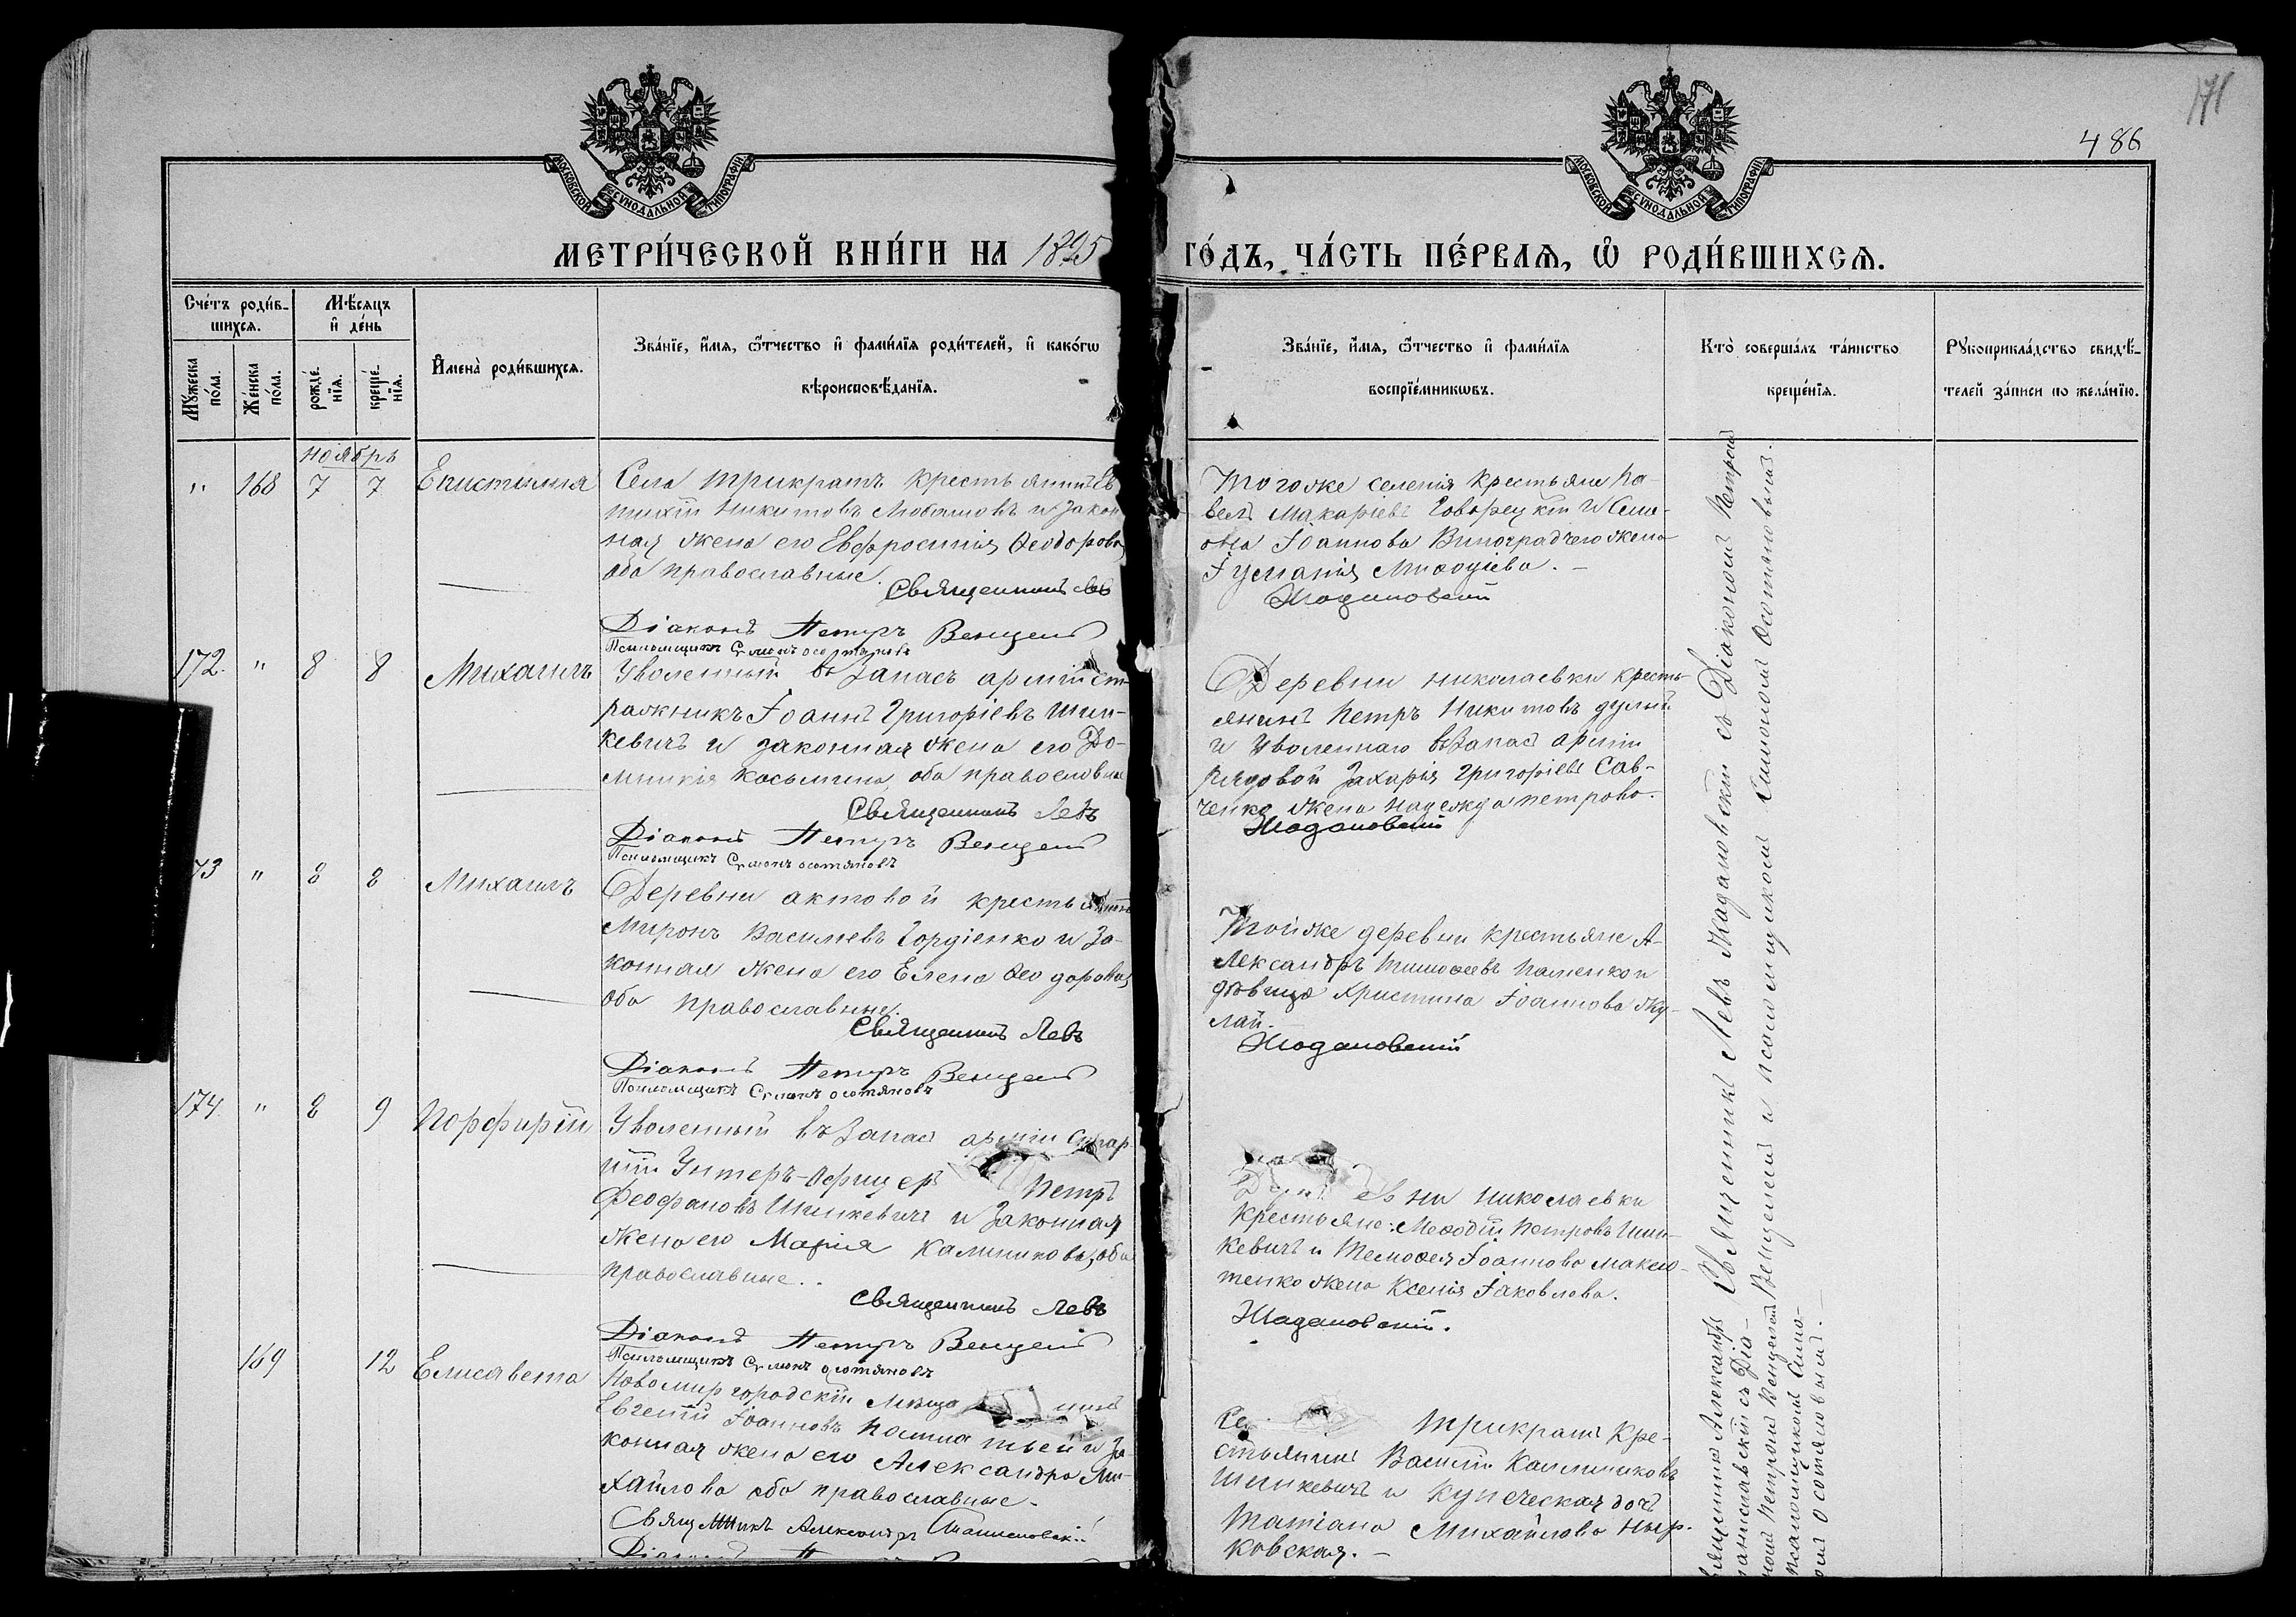 171
486
МОСКОВСКОЙ СѴНОДАЛЬНОЙ ТИПОГРАФІИ
МОСКОВСКОЙ СѴНОДАЛЬНОЙ ТИПОГРАФІИ
МЕТРИ́ЧЕСКОЙ КНИ́ГИ НА 1895 ГО́ДЪ, ЧА́СТЬ ПЕ́РВАѦ, Ѡ҆ РОДИ́ВШИХСѦ.
Сче́тъ роди́в-
шихсѧ.
Мꙋ́жеска по́ла.
Же́нска по́ла.
Мѣ́сяцъ
и҆ де́нь
рожде́нїѧ.
креще́нїѧ.
И҆мена̀ роди́вшихсѧ.
Зва́нїе, и҆́мѧ, ѻ҆́тчество и҆ фами́лїѧ роди́телей, и҆ како́гѡ
вѣроисповѣ́данїѧ.
Зва́нїе, и҆́мѧ, ѻ҆́тчество и҆ фами́лїѧ
воспрїе́мникѡвъ.
Кто̀ соверша́лъ та́инство
креще́нїѧ.
Рꙋкоприкла́дство свидѣ́-
телей за́писи по жела́нїю.
ноябрь
" 168 7 7 Епистимия
Села Трикратъ крестьянинъ Ев
тихій Никитовъ Любашовъ и закон
ная жена его Евфросинія Ѳеодорова,
оба православные.
Священникъ Левъ
Діаконъ Петръ Венцель
Псаломщикъ Симонъ Осотяновъ
Тогоже селенія крестьяне Па-
велъ Макаріевъ Говорецкій и Сим-
она Іоаннова Виноградчего жена
Іуліанія Меѳодіева. -
Жадановскій
172. " 8 8 Михаилъ
Уволенный въ Запасъ арміи ст-
ражникъ Іоаннъ Григоріевъ Шин-
кевичъ и законная жена его До-
мникія Косьмина, оба православные
Священникъ Левъ
Діаконъ Петръ Венцель
Псаломщикъ Симонъ Осотяновъ
Деревни Николаевки кресть-
янинъ Петръ Никитовъ Дулый
и уволеннаго въ Запас арміи
рядовой Захарія Григоріевъ Сав-
ченко жена Надежда Петрова.
Жадановскій
73 " 8 8 Михаилъ
Деревни Актовой крестьянинъ
Миронъ Васильевъ Гордіенко и за-
конная жена его Елена Ѳеодорова,
оба православные.
Священникъ Левъ
Діаконъ Петръ Венцель
Псаломщикъ Симонъ Осотяновъ
Тойже деревни крестьяне А-
лександръ Тимоѳеевъ и
дѣвица Христина Іоаннова Жу-
лай.
Жадановскій
174 " 8 9 Порфирій
Уволенный въ Запас арміи Стар-
шій Унтеръ-Офицеръ Петръ
Феофановъ Шинкевичъ и законная
жена его Марія Калиникова, оба
православные..
Священникъ Левъ
Діаконъ Петръ Венцель
Псаломщикъ Симонъ Осотяновъ
Николаевки
крестьяне: Меѳодій Петровъ Шин-
кевичъ и Тимоѳея Іоаннова Максю-
тенко жена Ксенія Іаковлева.
Жадановскій.
169 12 Елисавета
Новомиргородскій мѣща нинъ
Евгеній Іоанновъ и за-
конная жена его Александра Ми-
хайлова оба православные.
Священникъ Александръ Танисловскій
Трикратъ кре-
стьянинъ Василій Калиниковъ
Шинкевичъ и купеческая дочь
Татіана Михайлова
ковская. -
Священникъ Левъ Жадановскій съ Діакономъ Петромъ
Венцелемъ и псаломщикомъ Симономъ Осотяновымъ.
Священникъ Александръ
съ Діа-
кономъ Петромъ Венцелемъ
и псаломщикомъ Симо-
номъ Осотяновымъ.